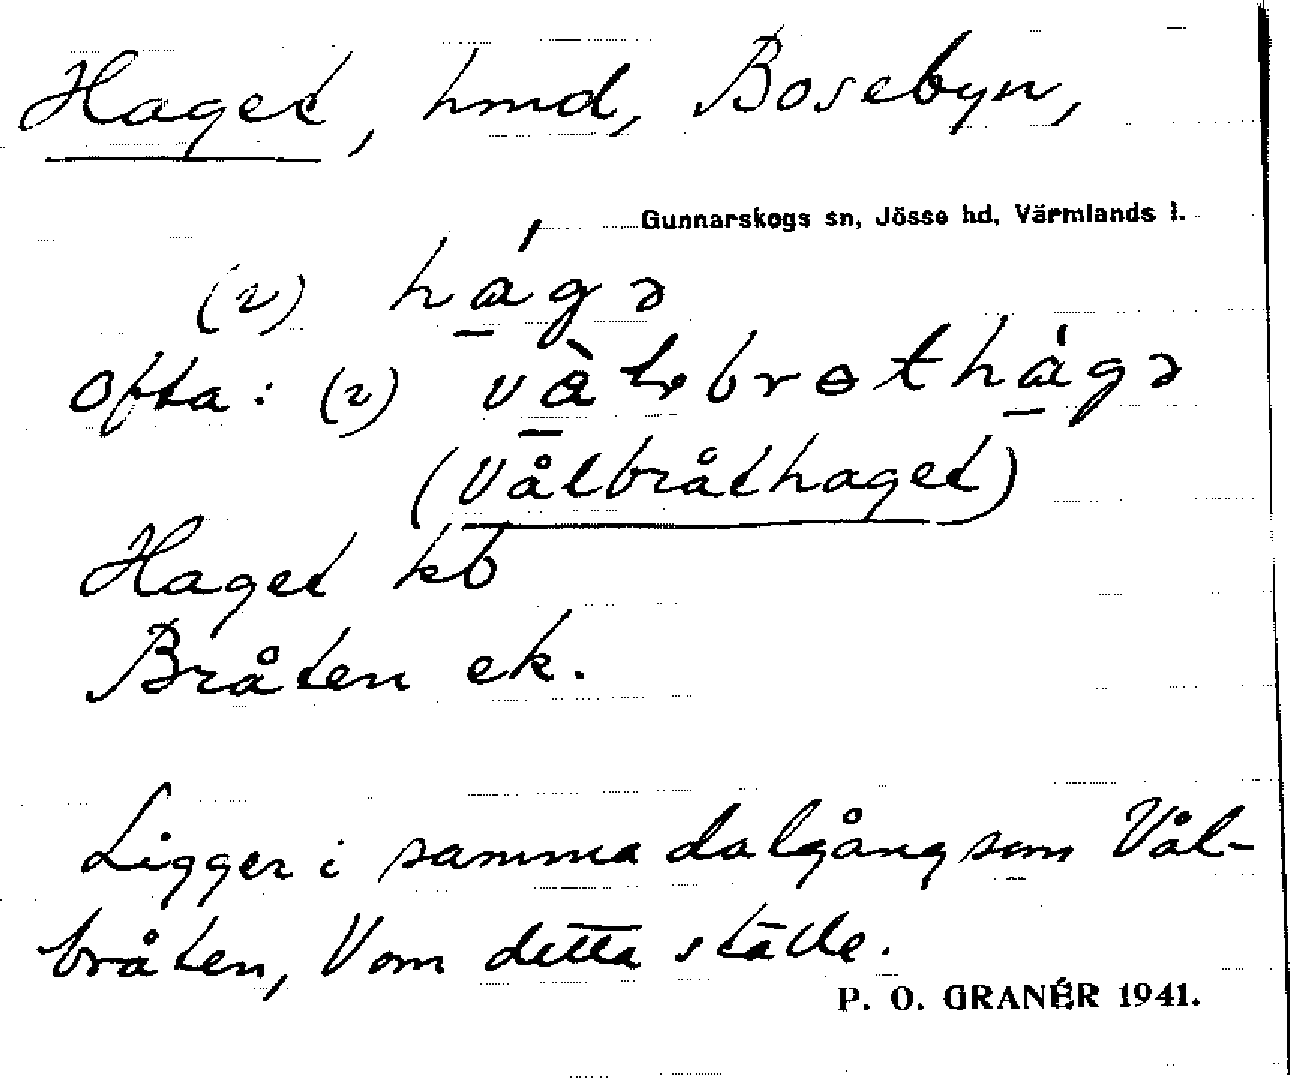 Haget, hmd, Bosebyn,
Gunnarskogs sn, Jösse hd, Värmlands l.
(2) hágə
Ofta: (2)
(Vålbråthaget)
Haget kb
Bråten ek.
Ligger i samma dalgång som Vål-
bråten, V om detta ställe.
P. O. GRANÉR 1941.